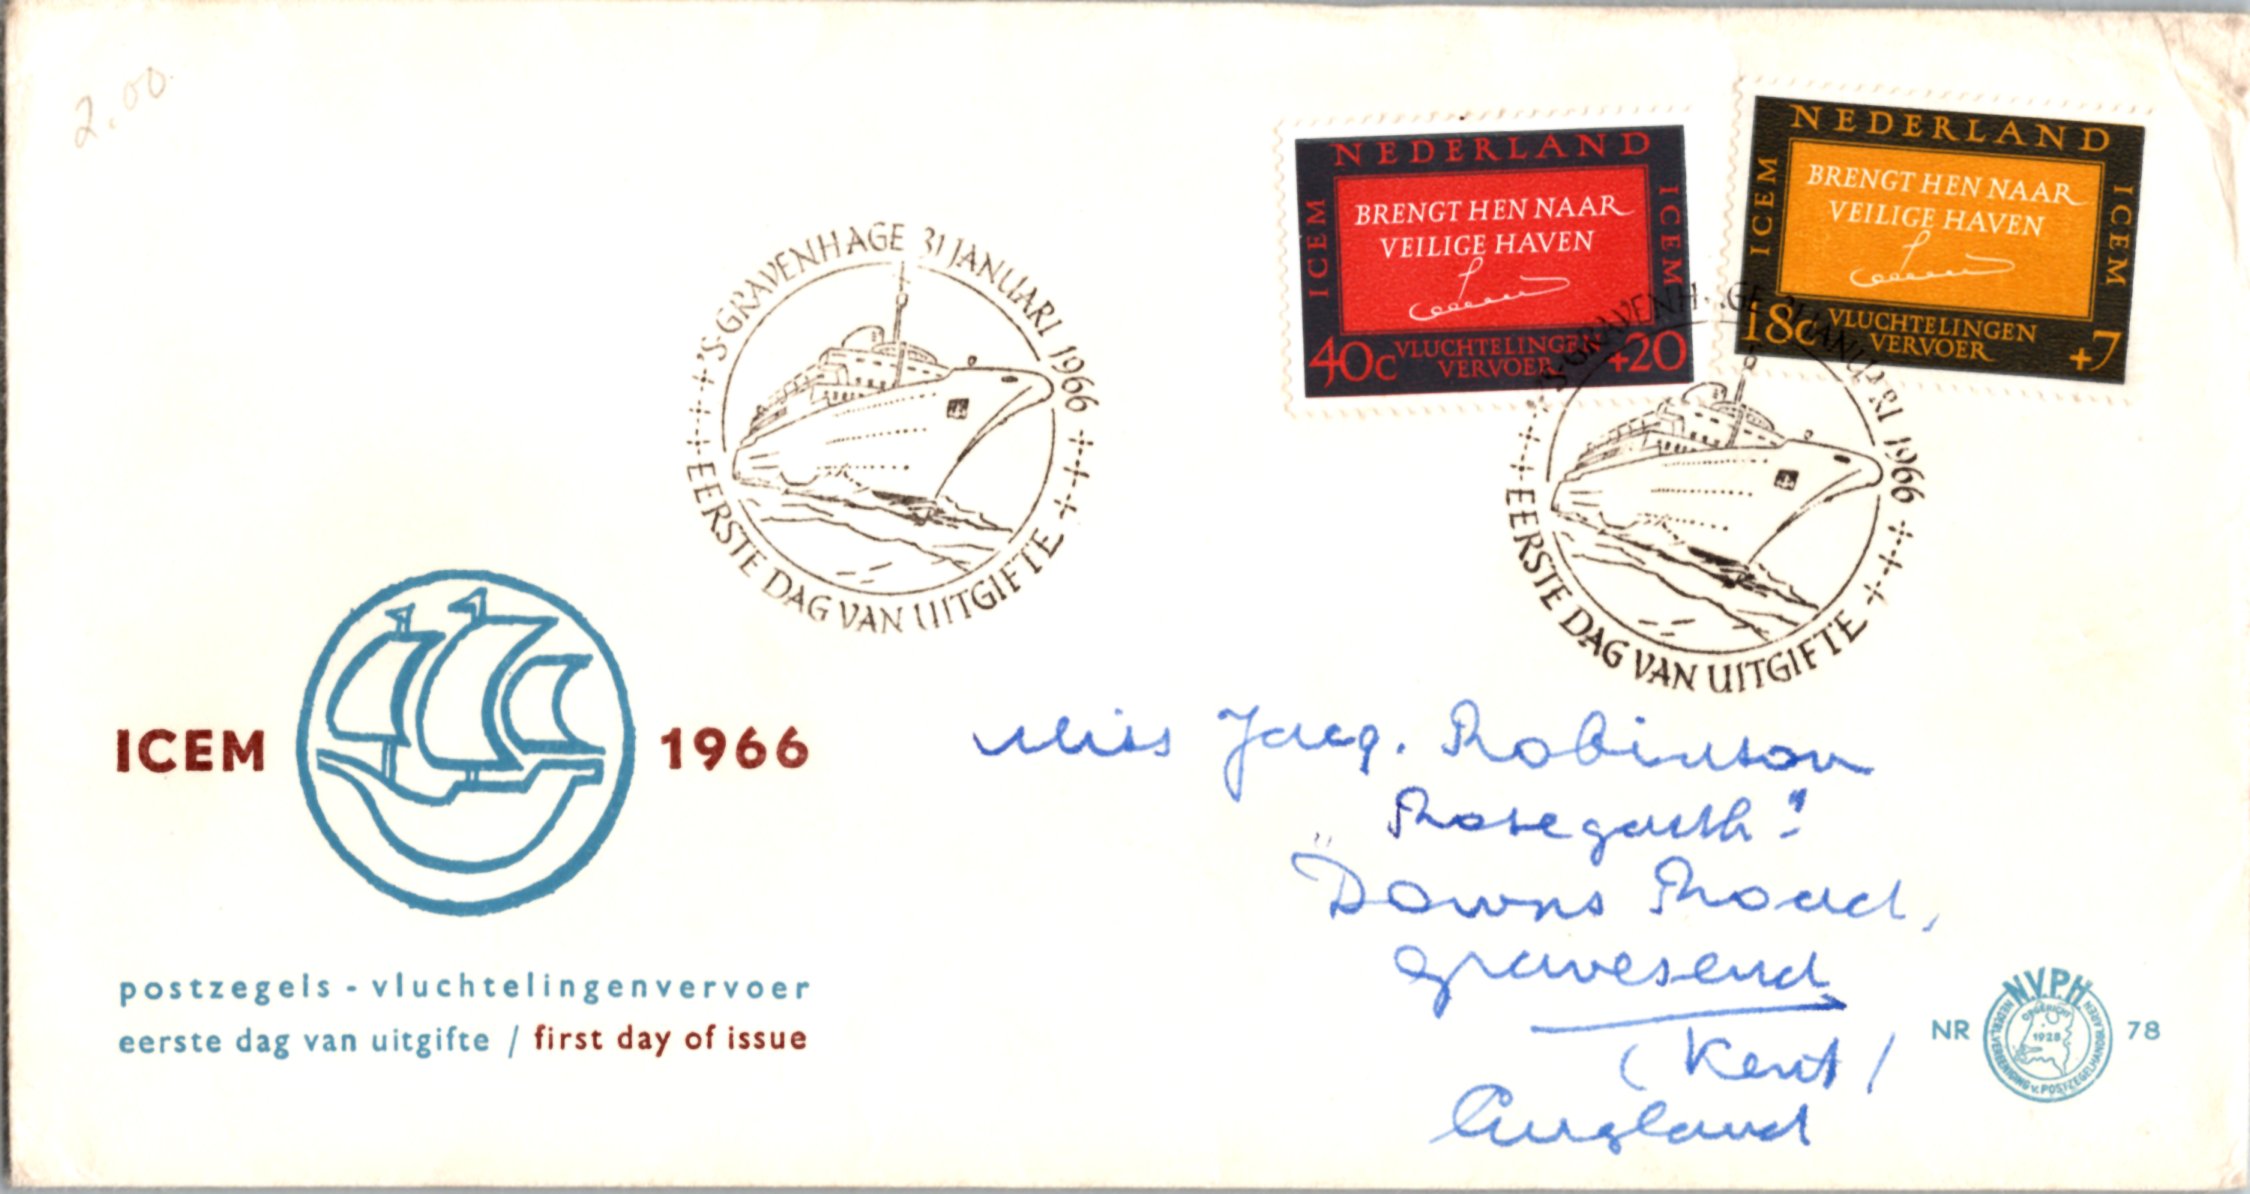 2.00
NEDERLAND
ICEM
BRENGT HEN NAAR
VEILIGE HAVEN
ICEM
40c VLUCHTELINGEN +20
VERVOER
NEDERLAND
ICEM
BRENGT HEN NAAR
VEILIGE HAVEN
ICEM
18c VLUCHTELINGEN +7
VERVOER
'S-GRAVENHAGE 31 JANUARI 1966
EERSTE DAG VAN UITGIFTE
'S-GRAVENHAGE 31 JANUARI 1966
EERSTE DAG VAN UITGIFTE
ICEM 1966
postzegels - vluchtelingenvervoer
eerste dag van uitgifte / first day of issue
Miss Jacq. Robinson
"Rosegarth"
Downs Road,
Gravesend
(Kent)
England
NR 78
NVPH
NEDERL. VEREENIGING V. POSTZEGELHANDELAREN
OPGERICHT
1928